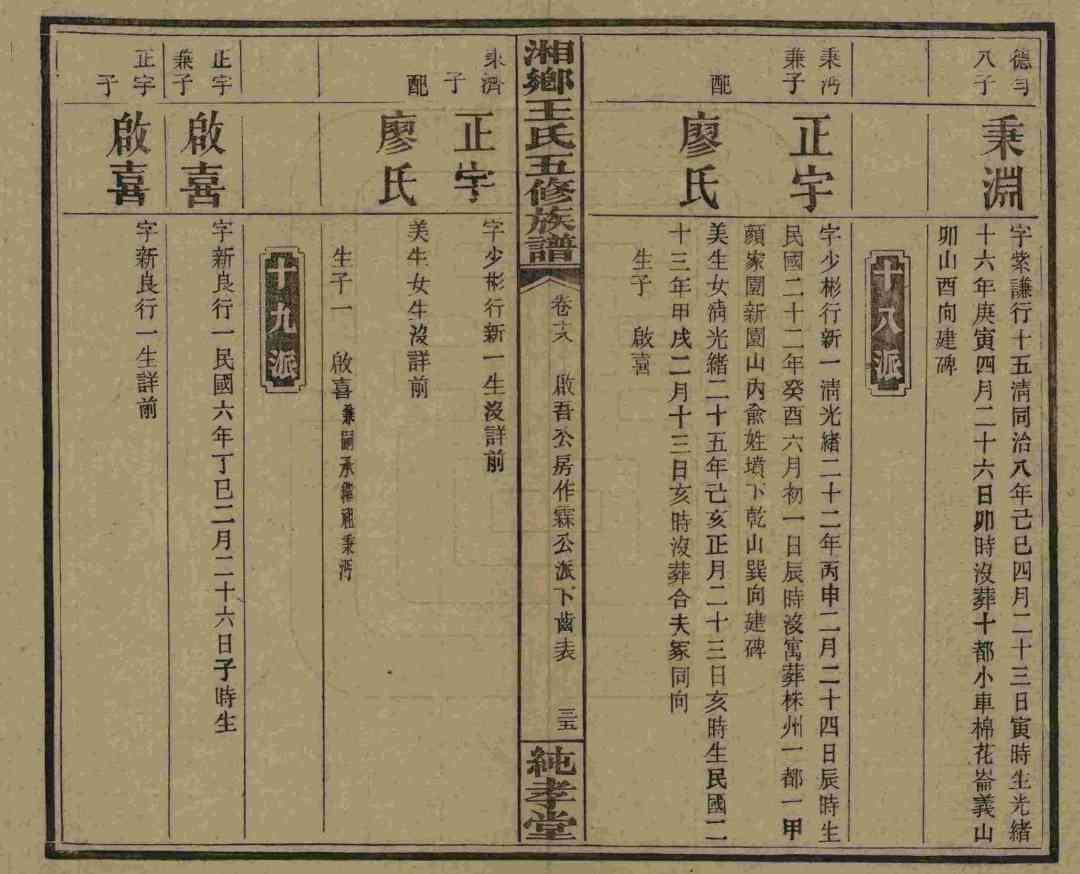 德勻
八子
秉淵
字紫謙行十五清同治八年己巳四月二十三日寅時生光緒
十六年庚寅四月二十六日卯時沒葬十都小車棉花崙義山
卯山酉向建碑
十八派
秉沔
兼子
正宇
字少彬行新一清光緒二十二年丙申二月二十四日辰時生
民國二十二年癸酉六月初一日辰時沒寓葬株州一都一甲
顏家園新園山內俞姓墳下乾山巽向建碑
配
廖氏
美生女清光緒二十五年己亥正月二十三日亥時生民國二
十三年甲戌二月十三日亥時沒葬合夫冢同向
生子 啟喜
湘鄉王氏五修族譜
卷十八 啟吾公房作霖公派下齒表 三五
純孝堂
秉濟
子
正宇
字少彬行新一生沒詳前
配
廖氏
美生女生沒詳前
生子一 啟喜兼嗣承繼祖秉沔
十九派
正宇
兼子
啟喜
字新良行一民國六年丁巳二月二十六日子時生
正宇
子
啟喜
字新良行一生詳前